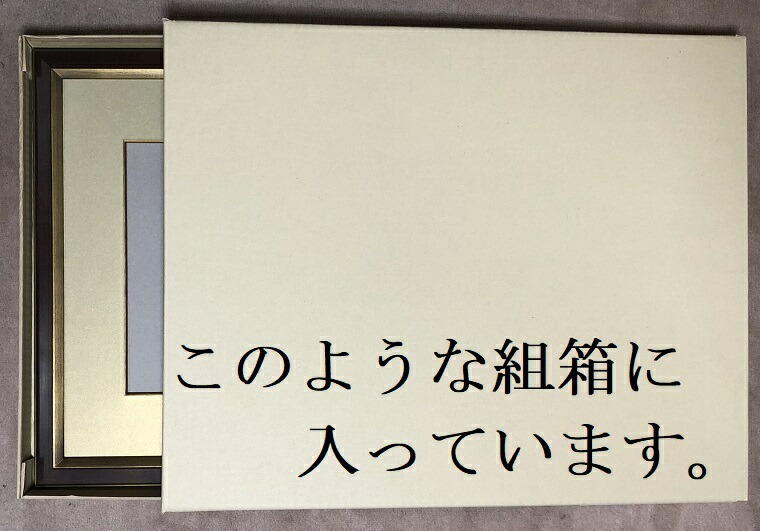 このような組箱に
入っています。